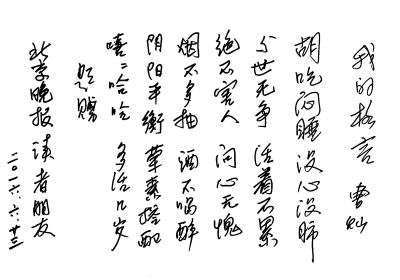 我的格言 曹灿
胡吃闷睡 没心没肺
与世无争 活着不累
绝不害人 问心无愧
烟不多抽 酒不喝醉
阴阳平衡 荤素搭配
嘻嘻哈哈 多活几岁
题赐
北京晚报读者朋友
二〇一六.六.廿三